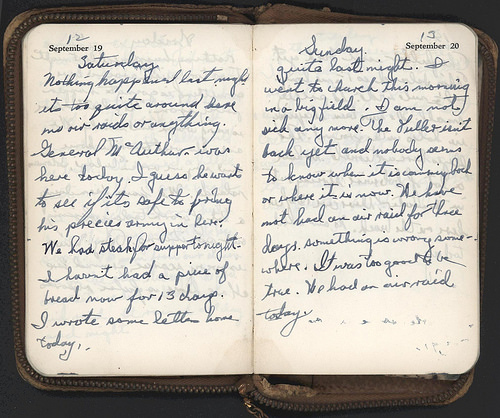 12
September 19
Saturday
Nothing happened last night
its too quite around here
no air raids or anything.
General McArthur was
here today. I guess he wants
to see if its safe to bring
his precies army in here.
We had steak for support tonight.
I haven't had a piece of
bread now for 13 days.
I wrote some letters home
today.
13
September 20
Sunday
quite last night. I
went to church this morning
in a big field. I am not
sick any more. The Huller isn't
back yet and nobody seems
to know when it is coming back
or where it is now. We have
not had an air raid for three
days. something is wrong some-
where. It was too good to be
true. We had an air raid
today.